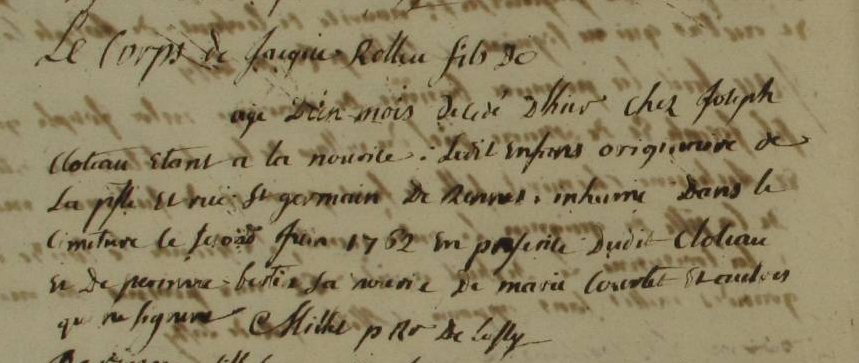 Le Corps de Jacque Rolleu fils de
agé D'un mois decedé D'hier chez Joseph
Cloteau Etant a la nourice. Ledit Enfans originaire de
La psse Et rue St germain De Rennes, inhumé Dans le
Cimiture le Juin 1762 En presence Dudit Cloteau
Et De perinne sa nourice De marie Et autres
qui ne signent Millet p Rr De